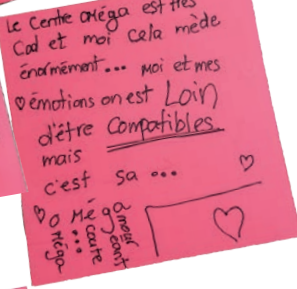 Le Centre oméga est très
Cool et moi cela mède
énormément... Moi et mes
♡ émotions on est Loin
d'être Compatibles
mais
c'est sa ...
♡
oméga
Mé
... coute
géant
amour